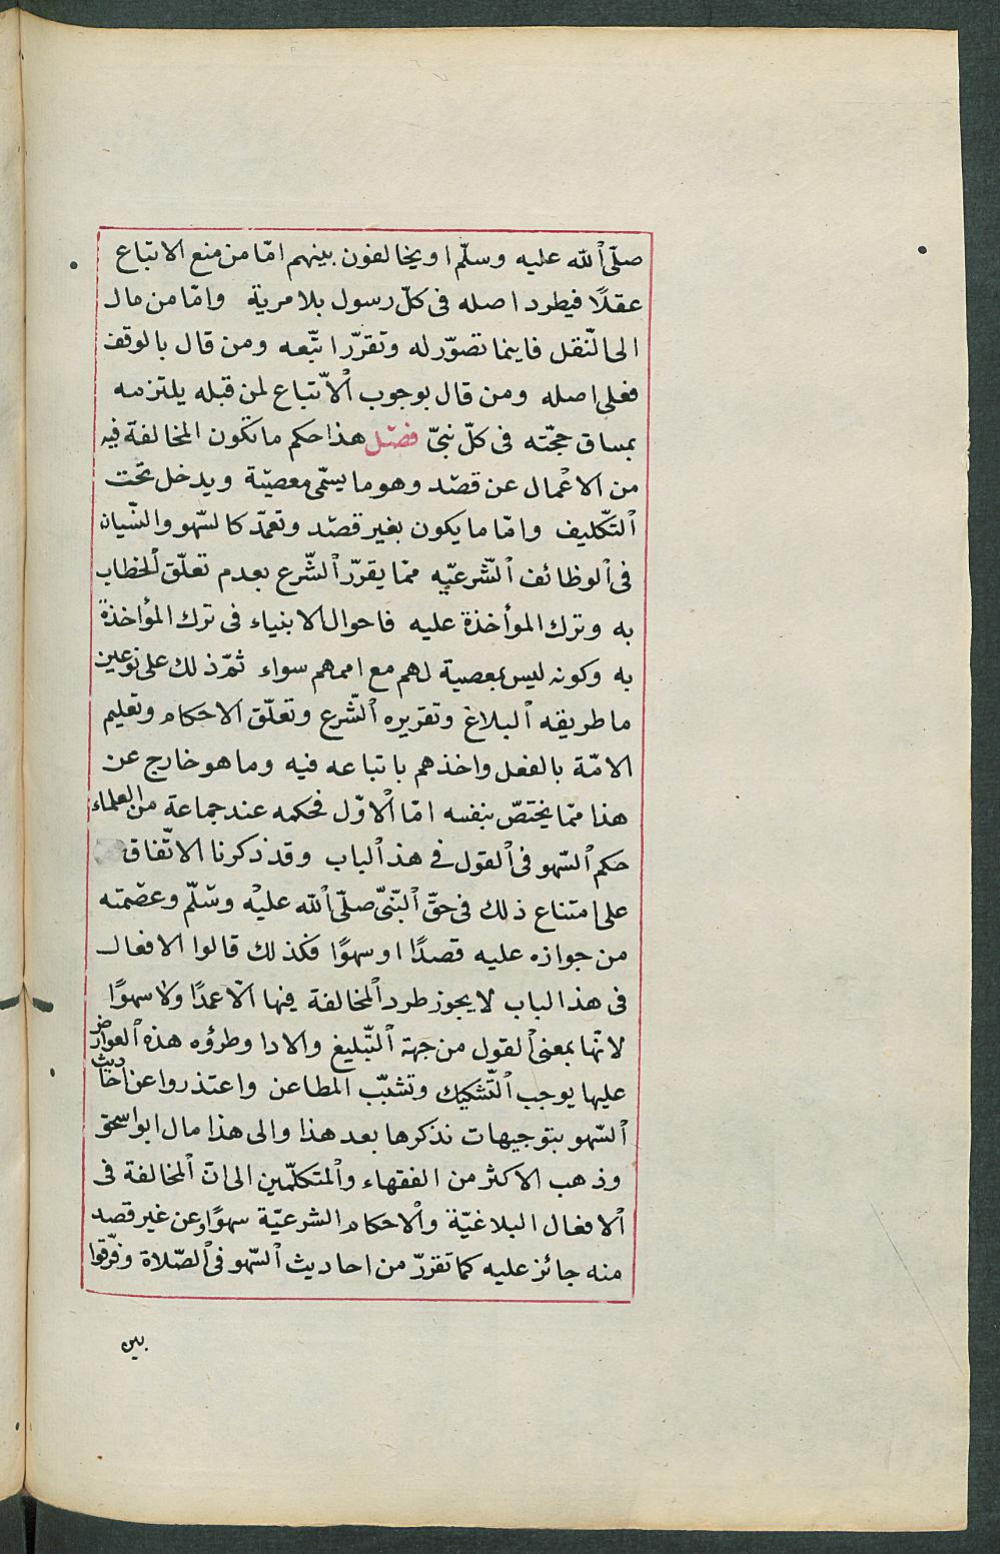 صلّى الله عليه وسلّم او يخالفون بينهم امّا من منع الاتباع
عقلًا فيطرد اصله فى كلّ رسول بلا مرية وامّا من مال
الى النّقل فاينما تصوّر له وتقرّر اتّبعه ومن قال بالوقف
فعلى اصله ومن قال بوجوب الاتّباع لمن قبله يلتزمه
بمساق حجّته فى كلّ نبىّ فصل هذا حكم ما تكون المخالفة فيه
من الاعمال عن قصد وهو ما يسمّى معصية ويدخل تحت
التّكليف وامّا ما يكون بغير قصد وتعمّد كالسّهو والنّسيان
فى الوظائف الشّرعيّه ممّا يقرّر الشّرع بعدم تعلّق الخطاب
به وترك المؤأخذة عليه فاحوال الانبياء فى ترك المؤاخذة
به وكونه ليس بمعصية لهم مع اممهم سواء ثمّ ذلك على نوعين
ما طريقه البلاغ وتقريره الشّرع وتعلّق الاحكام وتعليم
الامّة بالفعل واخذهم باتباعه فيه وما هو خارج عن
هذا ممّا يختصّ بنفسه امّا الاوّل فحكمه عند جماعة من العلماء
حكم السّهو فى القول فى هذ الباب وقد ذكرنا الاتّفاق
على امتناع ذلك فى حقّ النّبىّ صلّى الله عليه وسّلّم وعصمته
من جوازه عليه قصدًا او سهوًا فكذلك قالوا الافعال
فى هذ الباب لا يجوز طرد المخالفة فيها الّا عمدًا ولا سهوًا
لانّها بمعنى القول من جهة التّبليغ والادا وطرؤه هذه العوارض
عليها يوجب التّشكيك وتشبّب المطاعن واعتذروا عن احاديث
السّهو بتوجيهات نذكرها بعد هذا والى هذا مال ابو اسحق
وذهب الاكثر من الفقهاء والمتكلّمين الى انّ المخالفة فى
الافعال البلاغيّة والاحكام الشرعيّة سهوًا وعن غير قصد
منه جائز عليه كما تقرّر من احاديث السّهو فى الصّلاة وفرّقوا
بين